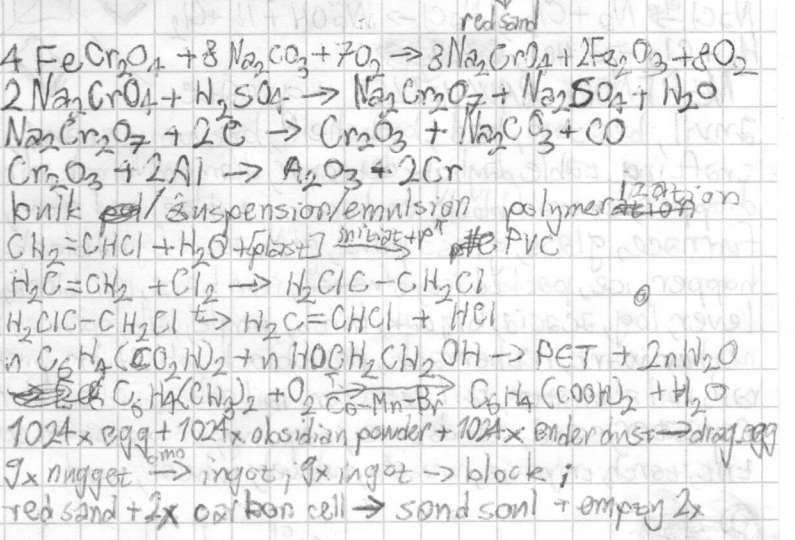 red sand
4 FeCr₂O₄ + 8 Na₂CO₃ + 7O₂ → 8Na₂CrO₄ + 2Fe₂O₃ + 8O₂
2 Na₂CrO₄ + H₂SO₄ → Na₂Cr₂O₇ + Na₂SO₄ + H₂O
Na₂Cr₂O₇ + 2C → Cr₂O₃ + Na₂CO₃ + CO
Cr₂O₃ + 2Al → A₂O₃ + 2Cr
bulk / suspension/emulsion polymerization
CH₂=CHCl + H₂O + [plast] initiat+pH → PVC
H₂C=CH₂ + Cl₂ → H₂ClC-CH₂Cl
H₂ClC-CH₂Cl t→ H₂C=CHCl + HCl
n C₆H₄(CO₂H)₂ + n HOCH₂CH₂OH → PET + 2nH₂O
C₆H₄(CH₃)₂ + O₂ T → Co-Mn-Br C₆H₄(COOH)₂ + H₂O
1024x egg + 1024x obsidian powder + 1024x ender dust → drag.egg
9x nugget → ingot, 9x ingot → block;
red sand + 2x carbon cell → sand soul + empty 2x